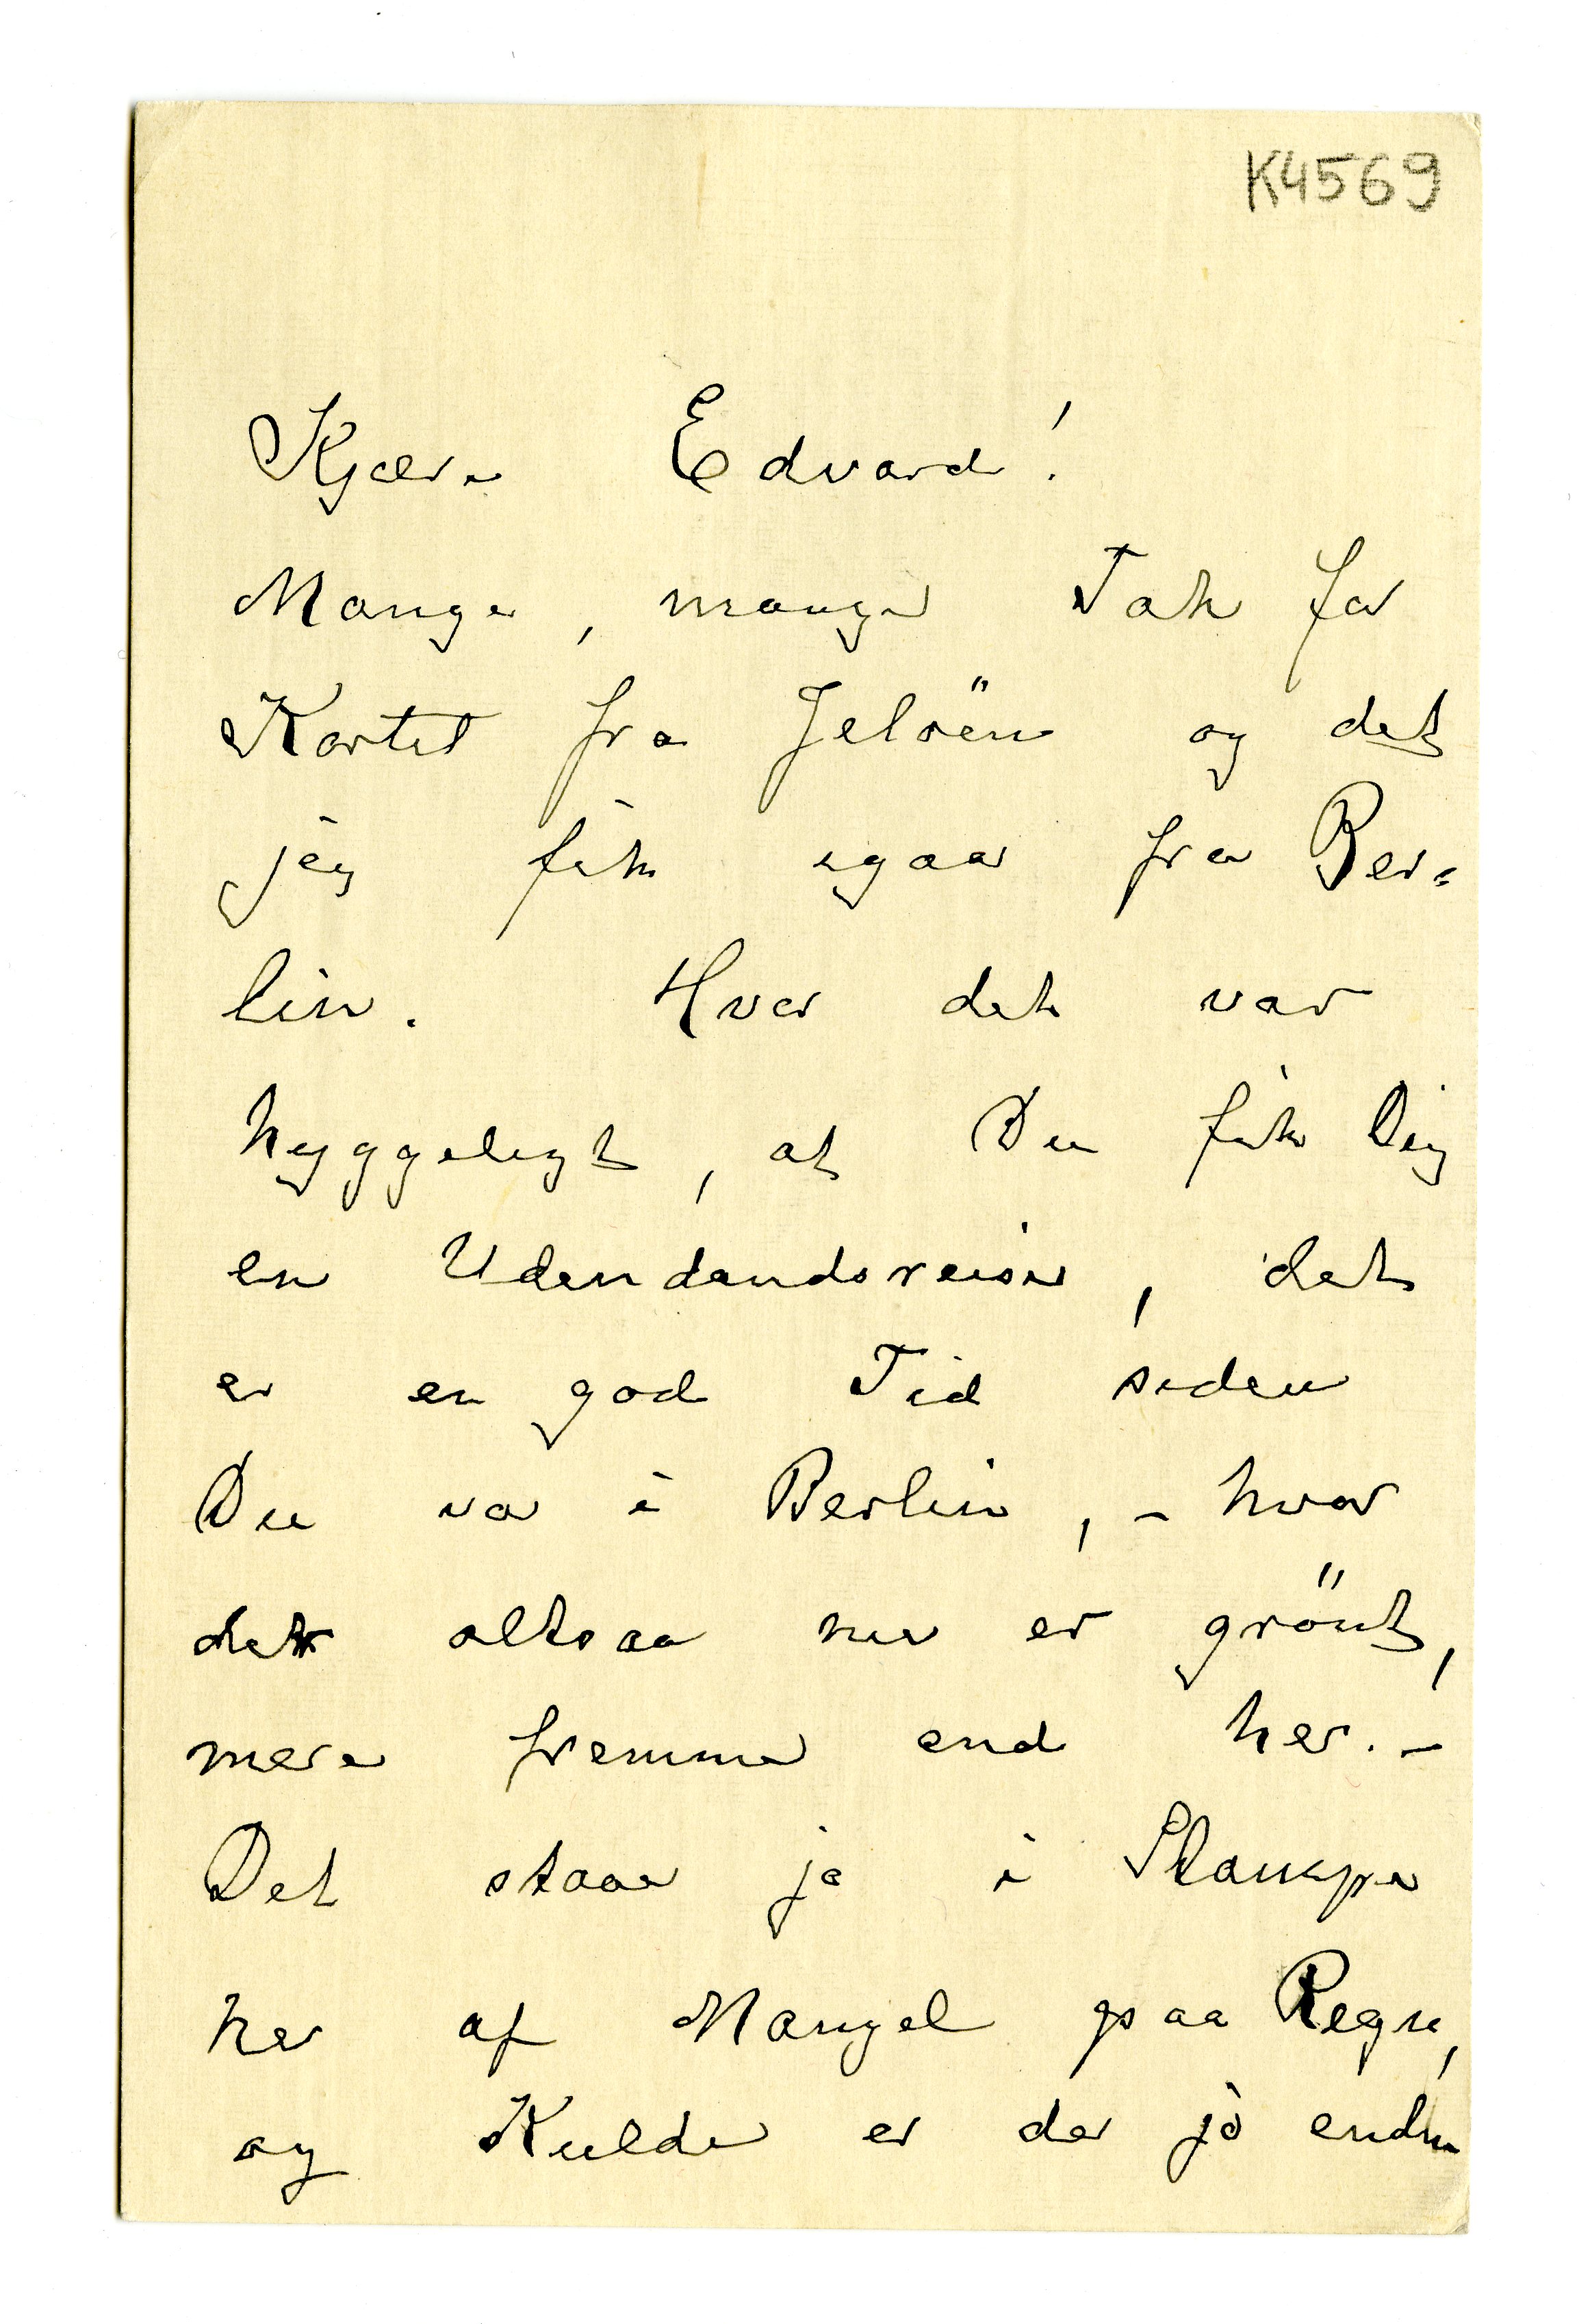 K4569
Kjære Edvard!
Mange, mange Tak for
Kortet fra Jelöen og det
jeg fik igaar fra Ber-
lin. Hvor det var
hyggeligt, at Du fik Dig
en Udenlandsreise, det
er en god Tid siden
Du var i Berlin, – hvor
det altsaa nu er grönt,
mere fremme end her. –
Det staar ja i Stampe
her af Mangel paa Regn,
og Kulde er der jo endnu